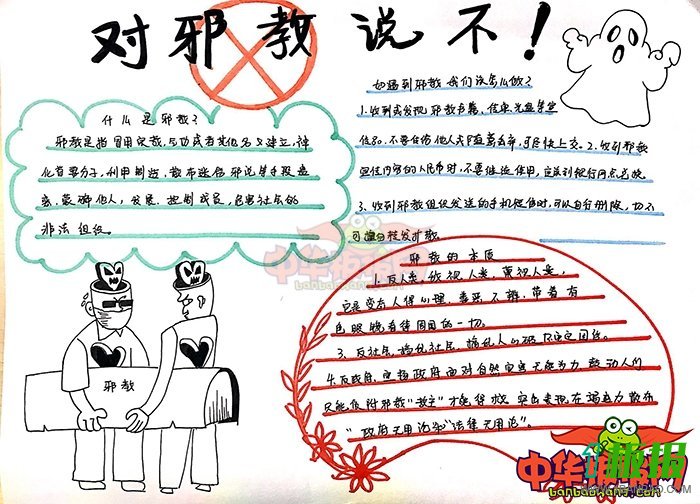 对邪教说不！
什么是邪教？
邪教是指冒用宗教，气功或者其他名义建立，神
化首要分子，利用制造，散布迷信邪说等手段蛊
惑，蒙骗他人，发展，控制成员，危害社会的
非法组织。
如遇到邪教，我们该怎么做？
1.收到或发现邪教书籍、传单、光盘等宣
传品，不要在传他人或随意丢弃，尽快上交。2.收到邪教
宣传内容的人民币时，不要继续使用，应该到银行网点兑换
3.收到邪教组织发送的手机短信时，可以自行删除，切不
可擅自转发扩散。
邪教的本质
1.反人类，敌视人类，蔑视人类，
色眼睛看待周围的一切。
3.反社会，扰乱社会，
4.反政府，宣扬政府面对自然灾害无能为力，鼓动人们
只能依附邪教“教主”才能得救，突出表现在竭尽力散布
“政府无用论和“法律无用论”。
邪教
中华拼报网
banbaowang.com
中华板报网
banbaowang.com